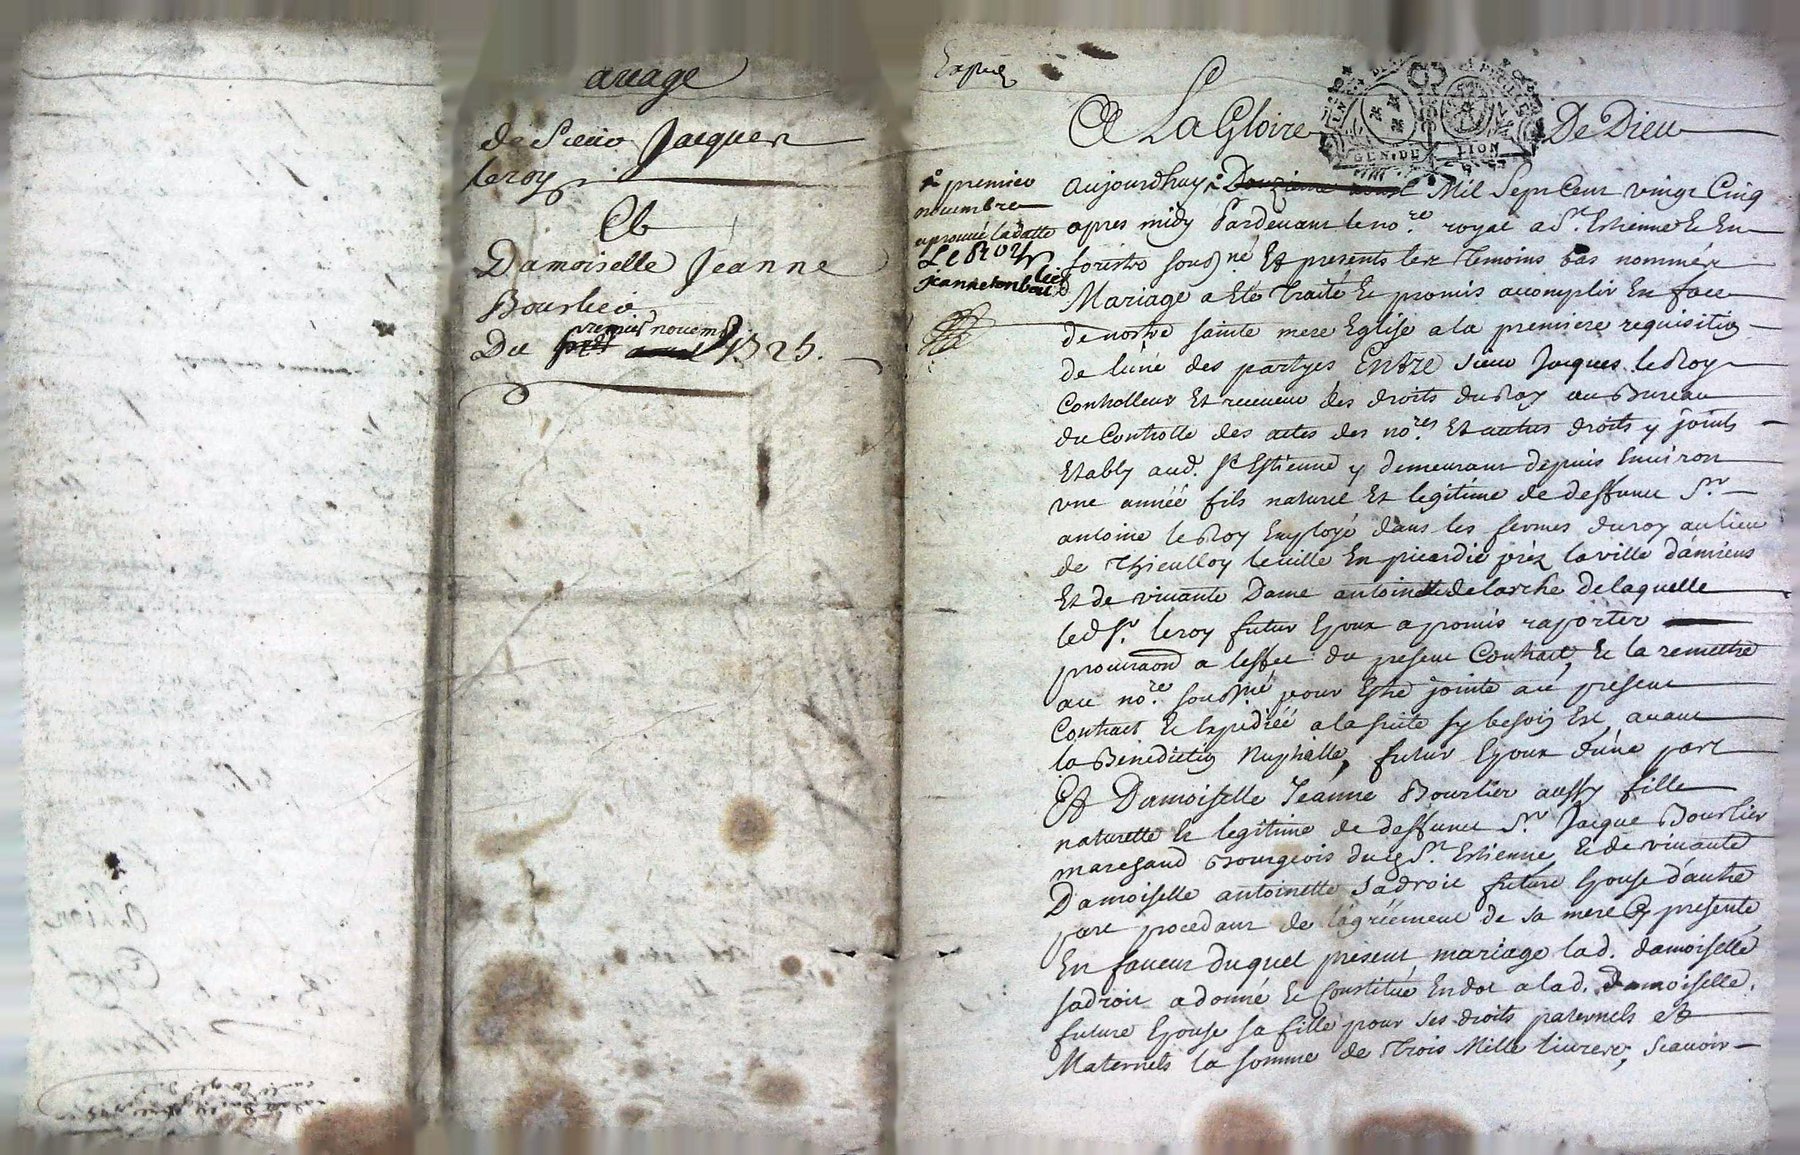 ariage
de Sieur Jacques
leroy
Et
Damoiselle Jeanne
Bourlier
Du premier novembre 1725.
Expié
A La Gloire De Dieu
GEN. DU LION
premier
novembre
aprouvé la datte
LeRoy
jeanneton bourlier
aujourdhuy Douzieme aoust Mil Sept Cent vingt Cinq
apres midy Pardevant le no.re royal a St. Estienne En
forestz sousné Et presents les Temoins bas nommés
Mariage a Eté Traité Et promis acomplir En face
de nostre sainte mere Eglise a la premiere requisition
de l'une des partyes Entre sieur Jacques LeRoy
Controlleur Et receveur des droits du Roy au Bureau
du Controlle des actes des no.res Et autres droits y joints
Etably aud. St Estienne y demeurant depuis Environ
une année fils naturel Et legitime de deffunt Sr.
antoine LeRoy Employé dans les fermes du roy au lieu
de Thieulloy la ville En picardie prez la ville d'amiens
Et de vivante Dame antoinette delarche De laquelle
led Sr. leroy futur Epoux a promis raporter
procuraon a l'effet du present Contract, Et la remettre
au no.re sousné pour Estre jointe au present
Contract Et Expediée a la suite sy besoin Est, avant
la Benediction Nuptialle, futur Epoux d'une part
Et Damoiselle Jeanne Bourlier aussy fille
naturelle Et legitime de deffunt Sr. Jacque Bourlier
marchand Bourgeois dud St. Estienne, Et de vivante
Damoiselle antoinette Jadroit future Epouse d'autre
part procedant de l'agréement de sa mere Cy presente
En faveur duquel present mariage lad. damoiselle
Jadroit a donné Et Constitué En dot a lad. damoiselle
future Epouse sa fille pour ses droits paternels Et
Maternels la somme de Trois Mille livres, Scavoir